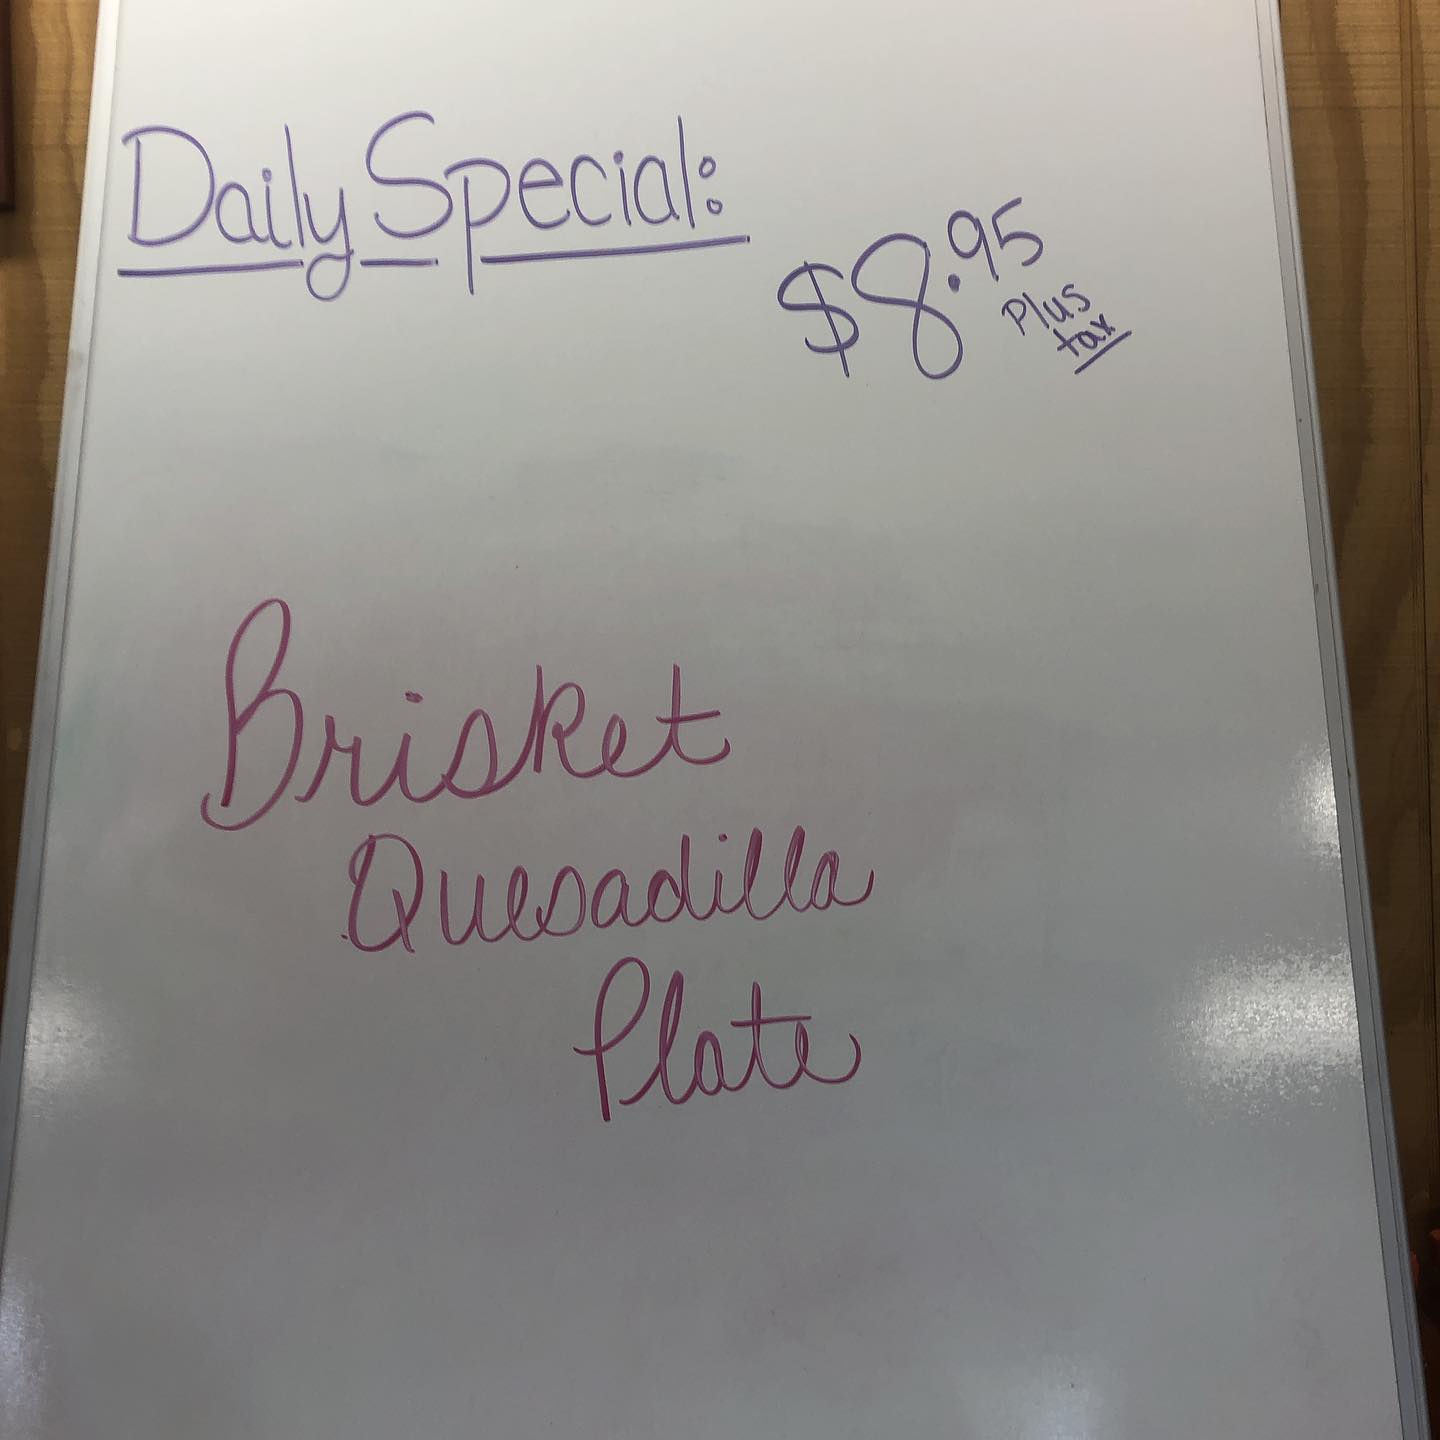 Daily Special:
$8.95
Plus
tax
Brisket
Quesadilla
Plate